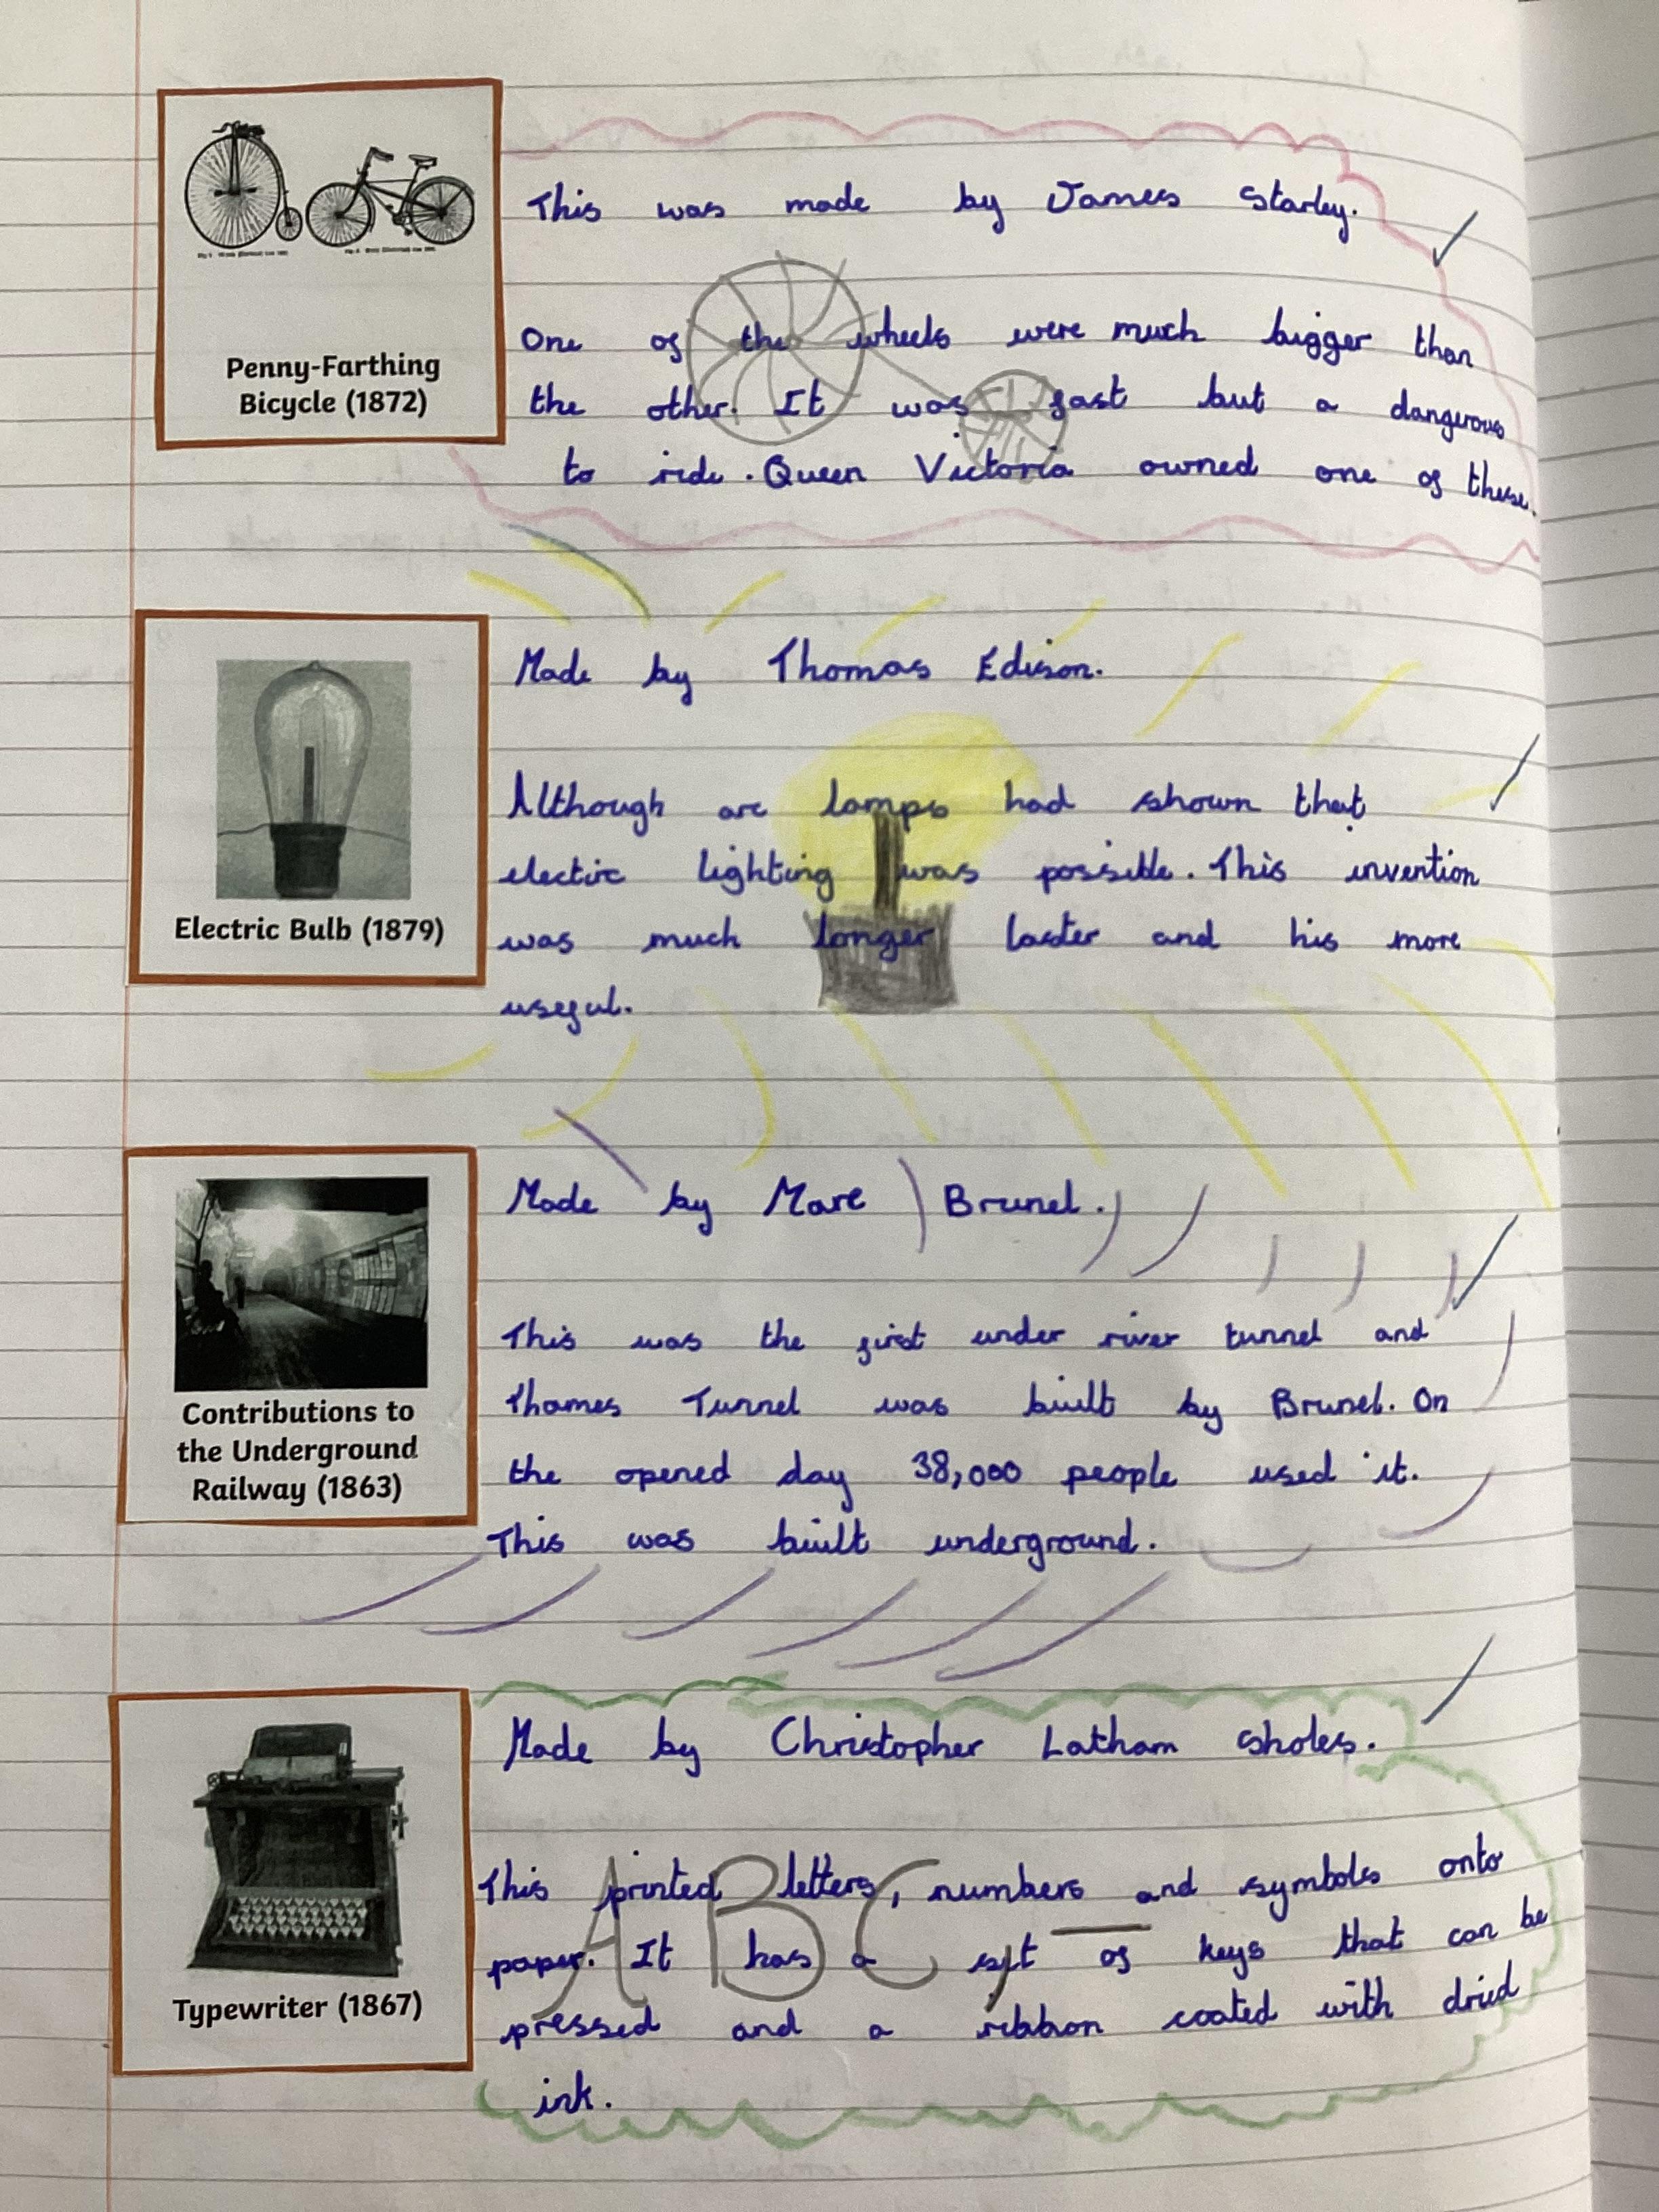 Penny-Farthing
Bicycle (1872)
This was made by James Starley.
One of the wheels were much bigger than
the other. It was fast but a dangerous
to ride. Queen Victoria owned one of these.
Electric Bulb (1879)
Made by Thomas Edison.
Although arc lamps had shown that
electirc lighting was possible. This invention
was much longer laster and his more
useful.
Contributions to
the Underground
Railway (1863)
Made by Marc Brunel.
This was the first under river tunnel and
Thames Tunnel was built by Brunel. On
the opened day 38,000 people used it.
This was built underground.
Typewriter (1867)
Made by Christopher Latham Sholes.
This printed letters, numbers and symbols onto
paper. It has a set of keys that can be
pressed and a ribbon coated with dried
ink.
A B C